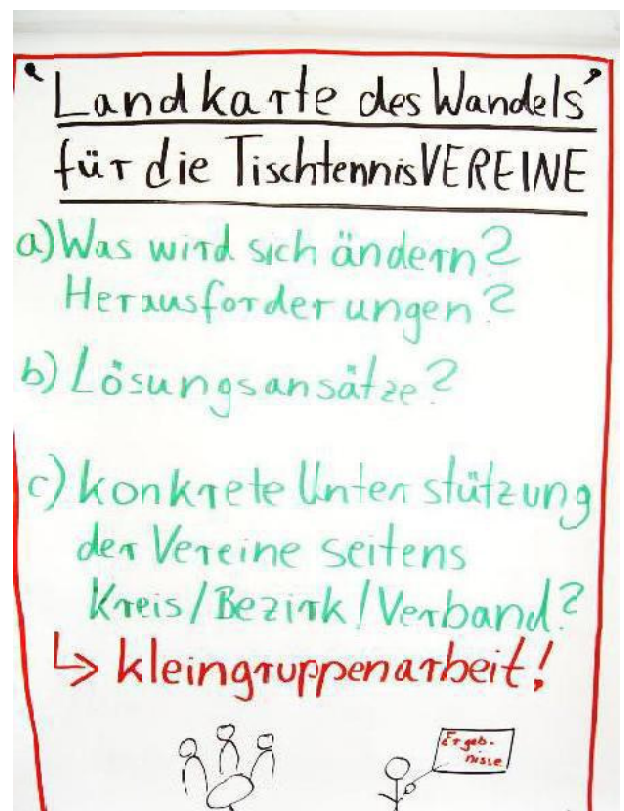 'Landkarte des Wandels'
für die TischtennisVEREINE
a) Was wird sich ändern?
Herausforderungen?
b) Lösungsansätze?
c) konkrete Unterstützung
der Vereine seitens
Kreis/Bezirk/Verband?
↳ kleingruppenarbeit!
Ergeb-
nisse